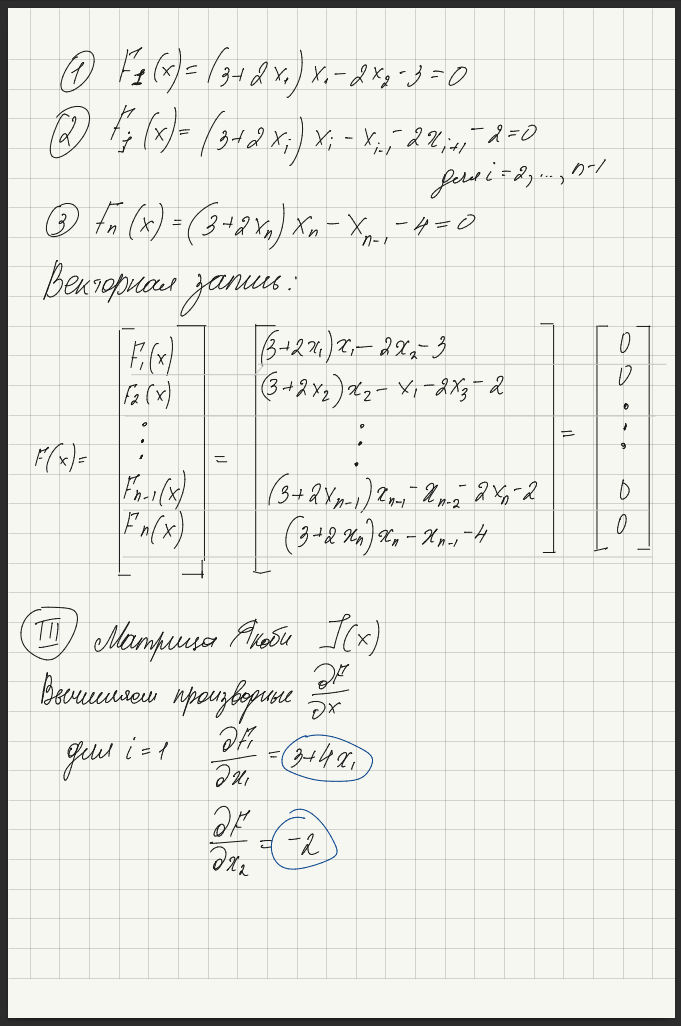 ① F₁(x) = (3+2x₁)x₁ - 2x₂ - 3 = 0
② Fⱼ(x) = (3+2xᵢ)xᵢ - xᵢ₋₁ - 2xᵢ₊₁ - 2 = 0
для i = 2, ..., n-1
③ Fₙ(x) = (3+2xₙ)xₙ - xₙ₋₁ - 4 = 0
Векторная запись:
F(x) = [F₁(x) F₂(x) ⋮ Fₙ₋₁(x) Fₙ(x)] =
[(3+2x₁)x₁ - 2x₂ - 3
(3+2x₂)x₂ - x₁ - 2x₃ - 2
⋮
(3+2xₙ₋₁)xₙ₋₁ - xₙ₋₂ - 2xₙ - 2
(3+2xₙ)xₙ - xₙ₋₁ - 4]
= [0 0 ⋮ 0 0]
III Матрица Якоби J(x)
Вычисляем производные ∂F/∂x
для i = 1 ∂F₁/∂x₁ = 3+4x₁
∂F/∂x₂ = -2